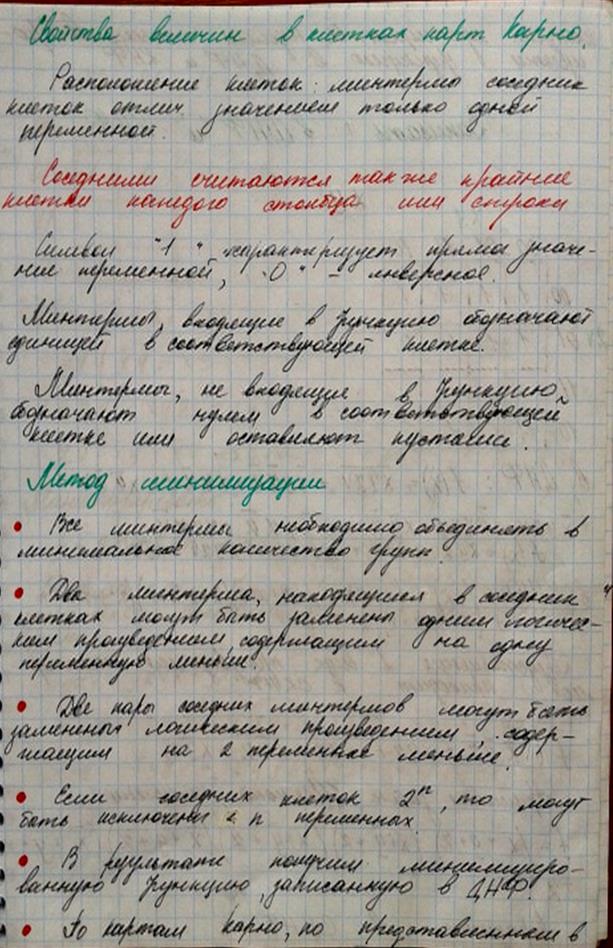 Свойства величин в клетках карт Карно.
Расположение клеток: минтермы соседних
клеток отлич. значением только одной
переменной.
Соседними считаются также крайние
клетки каждого столбца или строки
Символ "1" характеризует прямое значе-
ние переменной, "0" - инверсное.
Минтермы, входящие в функцию обозначают
единицей в соответствующей клетке.
Минтермы, не входящие в функцию,
обозначают нулем в соответствующей
клетке или оставляют пустыми.
Метод минимизации
• Все минтермы необходимо объединять в
минимальное количество групп.
• Два минтерма, находящиеся в соседних
клетках могут быть заменены одним логичес-
ким произведением, содержащим на одну
переменную меньше.
• Две пары соседних минтермов могут быть
заменены логическим произведением, содер-
жащим на 2 переменные меньше.
• Если соседних клеток 2ⁿ, то могут
быть исключены n переменных.
• В результате получим минимизиро-
ванную функцию, записанную в ДНФ.
• По картам Карно, по представленным в